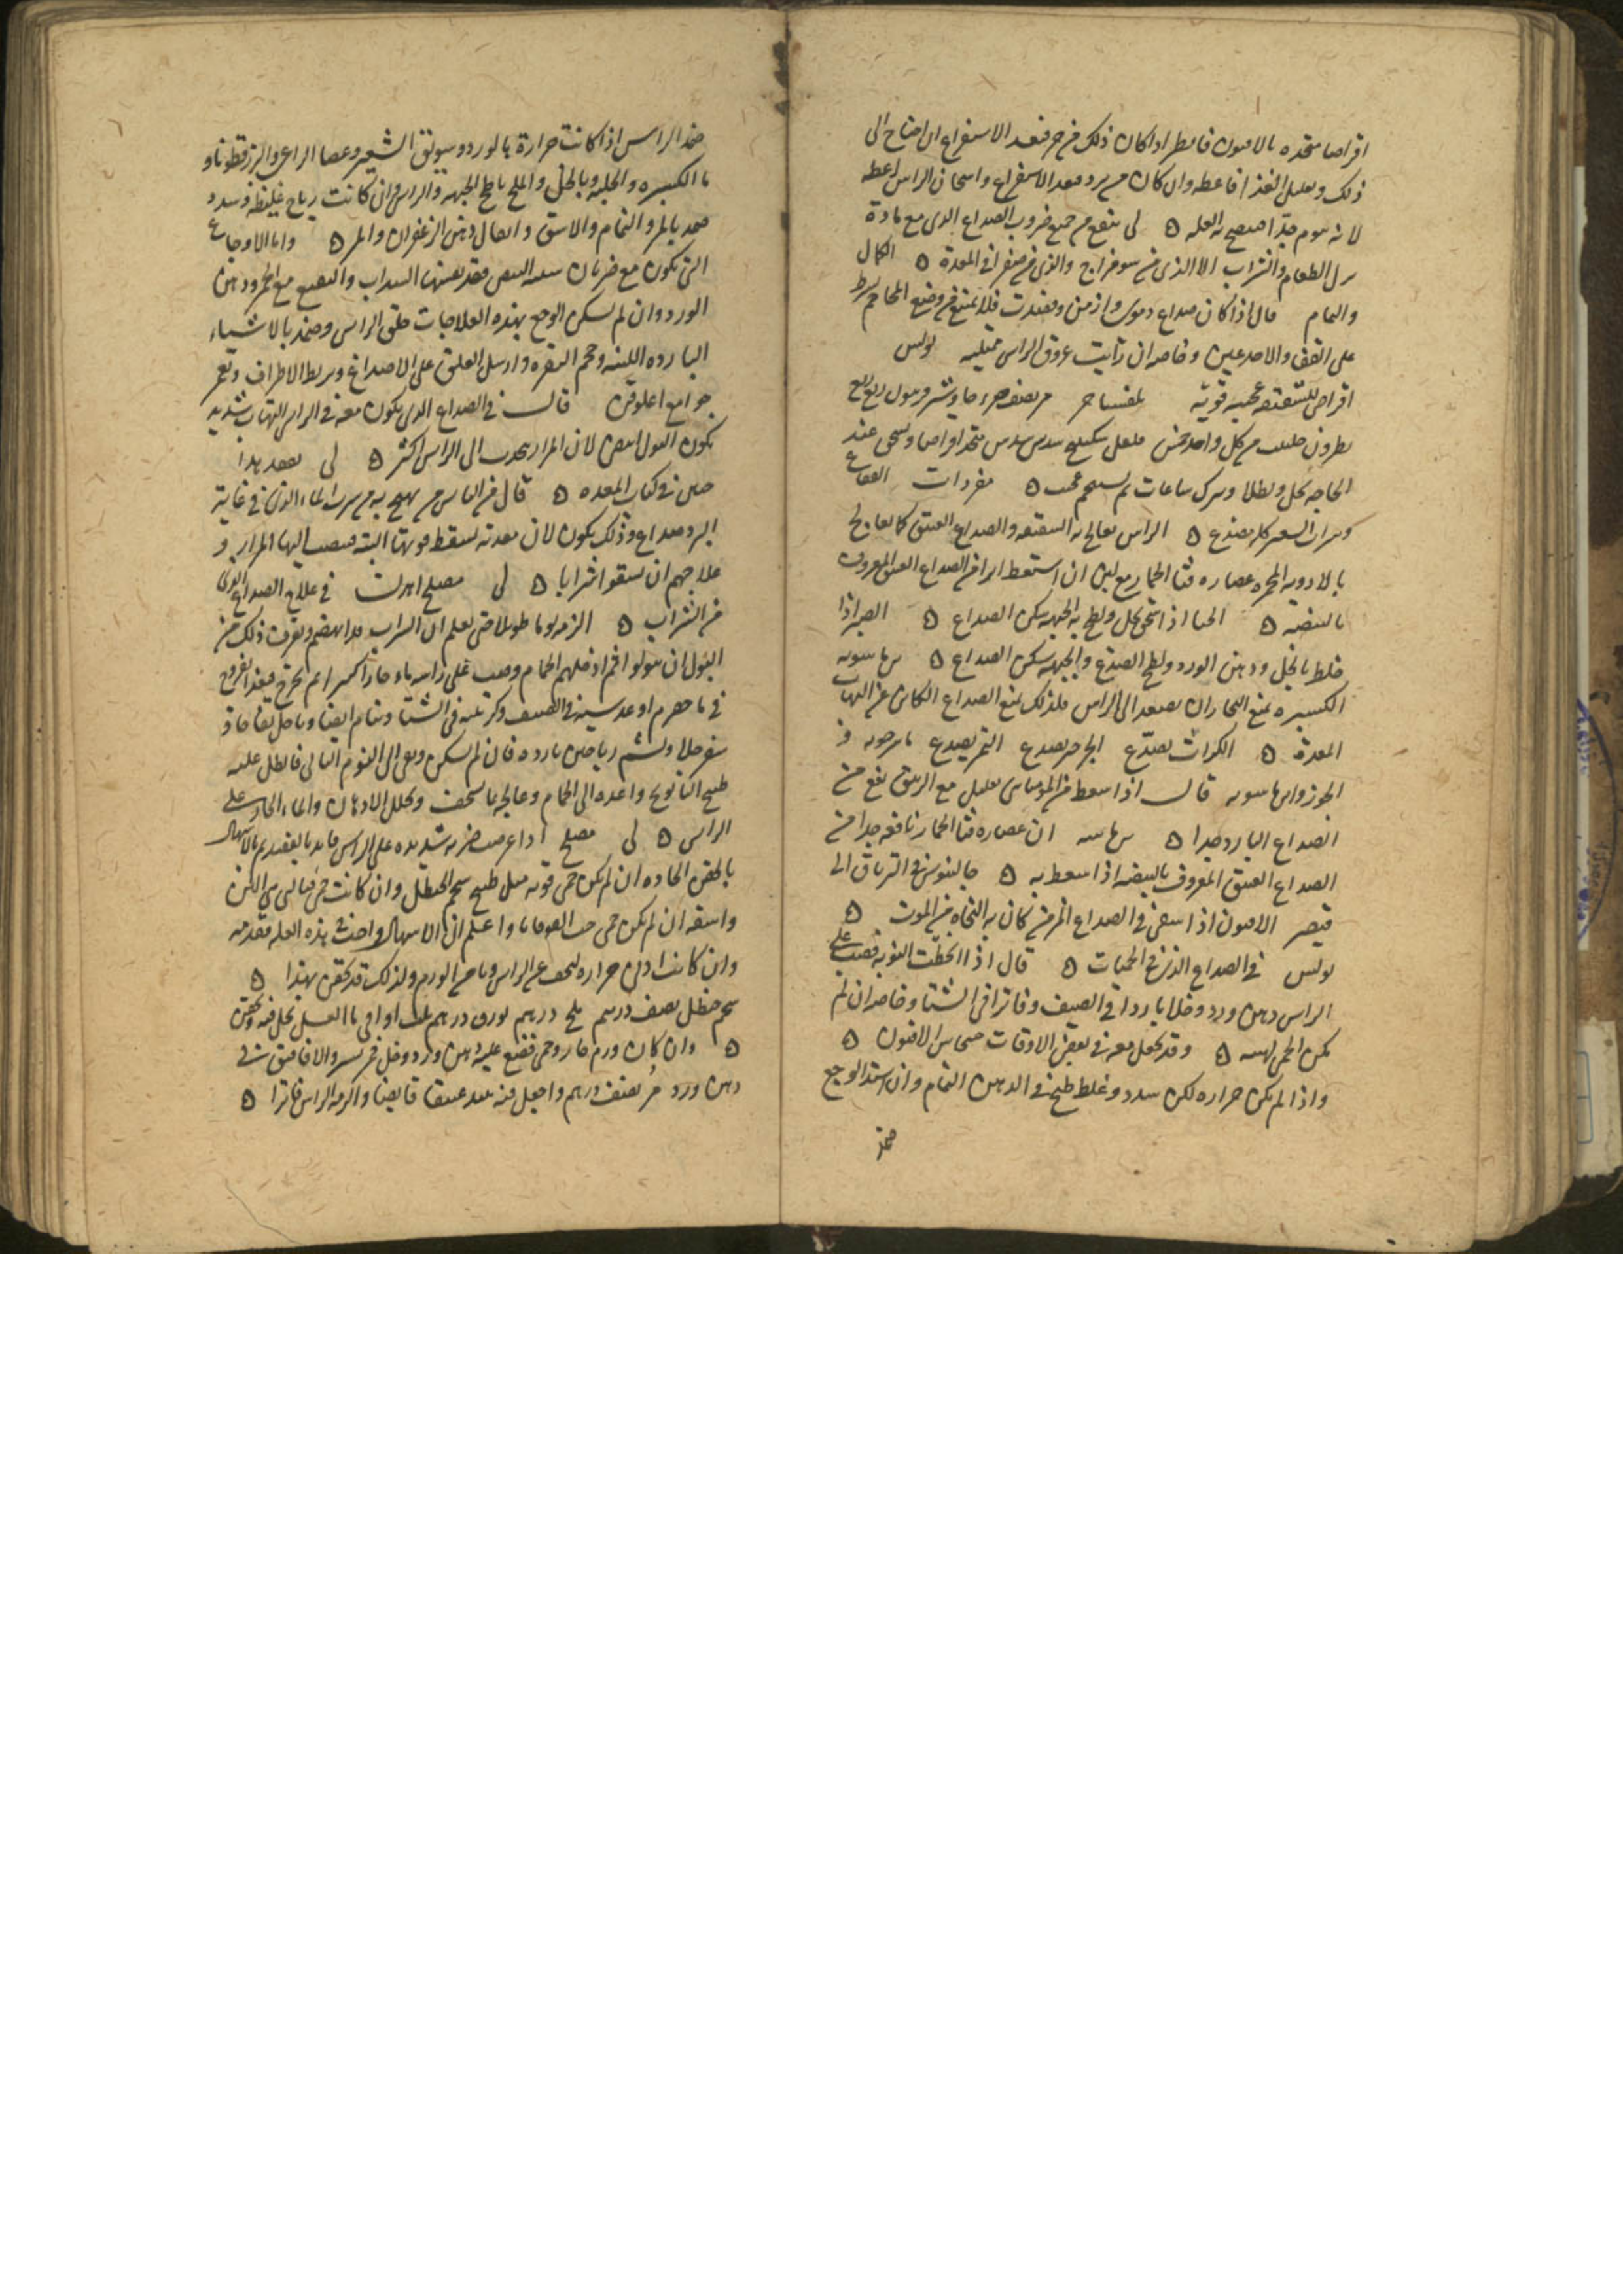 اقراصا متخذه بالافيون فانظر اذا كان ذلك من حر فبعد الاستفراغ ان احتاج الى
ذلك وتعديل الغذا فاعطه وان كان من برد فبعد الاستفراغ واسخان الراس اعطه
لانه ينوم جدا فينضج به العله ه لى ينفع من جميع ضروب الصداع الذى مع مادة
ترك الطعام والشراب الا الذى من سو مزاج والذى من صفرا فى المعدة ه الكمال
والتمام قال اذا كان صداع دموى وازمن وفصدت فلا تمتنع من وضع المحاجم بشرط
على القفا والاخدعين وخاصه ان رايت عروق الراس ممتليه بولس
اقراص للشقيقه عجيبه قويه
نطرون حلتيت من كل واحد خمس فلفل سكبينج سدس سدس يتخذ اقراصا ويسحق عند
الحاجه بخل ويطلا ويترك ساعات ثم يستحم عجيب ه مفردات الفقاع
وشراب الشعير كله يصدع ه الراس يعالج به الشقيقه والصداع العتيق كما يعالج
بالادويه المحمره عصاره قثا الحمار مع لبن ان استعط ابرا من الصداع العتيق المعروف
بالبيضه ه الحنا اذا سحق بخل ولطخ به الجبهه سكن الصداع ه الصبر اذا
خلط بالخل ودهن الورد ولطخ الصدغ والجبهه سكن الصداع ه ابن ماسويه
الكسبره تمنع البخار ان يصعد الى الراس فلذلك تمنع الصداع الكائن عن التهاب
المعدة ه الكراث يصدّع الجرجير يصدع التمر يصدع ماسرجويه فى
الجوز وابن ماسويه قال اذا سعط من الموميائى بقليل مع الزيبق نفع من
الصداع البارد جدا ه ابن ماسه ان عصاره قثا الحمار نافعه جدا من
الصداع العتيق المعروف بالبيضه اذا سعط به ه جالينوس فى الترياق الى
قيصر الافيون اذا سقى فى الصداع المزمن كان به النجاة من الموت ه
بولس فى الصداع الذى فى الحميات ه قال اذا انحطت النوبه فصب على
الراس دهن ورد وخلا باردا فى الصيف وفاترا فى الشتا وخاصه ان لم
تكن الحمى لهبه ه وقد يجعل معه فى بعض الاوقات خشخاش الافيون ه
واذا لم يكن حراره لكن سدد وغلظ طبخ فى الدهن النمام وان اشتد الوجع
ضمد
ضمد الراس اذا كانت حرارة بالورد وسويق الشعير وعصا الراعى والبزرقطونا و
ماالكسبره والحلبه وبالخل والملح يلطخ الجبهه والراس وان كانت رياح غليظه وسدد
ضمد بالمر والنمام والاشق وايصال دهن الزعفران والمر ه واما الاوجاع
التى يكون مع ضربان فقد يضمدها السذاب والنعنع مع الخبز ودهن
الورد وان لم يسكن الوجع بهذه العلاجات حلق الراس وضمد بالاشياء
البارده اللينه وحجم النقره وارسل العلق على الاصداغ وتربط الاطراف وتغمر
جوامع اغلوقن قال فى الصداع الذى يكون معه فى الراس التهاب شديد
يكون البول ابيض لان المرار يجذب الى الراس اكثر ه لى تفقد هذا
حين فى كتاب المعده ه قال من الناس من يهيج به من شرب الماء الذى فى غاية
البرد صداع وذلك يكون لان معدته تسقط قوتها البته فينصب اليها المرار و
علاجهم ان يسقوا شرابا ه لى مصلح اهرن فى علاج الصداع الذى
من الشراب ه الزمه نوما طويلا حتى تعلم ان الشراب قد انهضم وتعرف ذلك من
البول ان يبولوا ثم ادخلهم الحمام وصب على راسه ماء حارا كثيرا ثم يخرج فيغذا بفروج
فى ماحصرم او عدسيه فى الصيف وكرنبيه فى الشتا وينام ايضا وياكل تفاحا و
سفرجلا ويشم رياحين بارده فان لم يسكن وبقى الى اليوم الثانى فانطل عليه
طبيخ البابونج واعده الى الحمام وعالجه بما يسخف ويحلل الادهان والماء الحار على
الراس ه لى مصلح اذا عرضت ضربه شديده على الراس فابدا بالفصد ثم بالاسهال
بالحقن الحاده ان لم يكن حمى قويه مثل طبيخ شحم الحنظل وان كانت حمى فبالتى هى الين
واسقه ان لم يكن حمى حب القوقايا واعلم ان الاسهال واحتث هذه العله مقدمه
وان كانت ادنى حراره ليخف عن الراس ويامن الورم ولذلك قد يحقن بهذا ه
شحم حنظل نصف درهم ملح درهم بورق درهم ثلث اواقى ماالعسل يحل فيه ويحقن
ه وان كان ورم حار وحمى فضع عليه دهن ورد وخل خمر يسير والافاسق شى
دهن ورد مر نصف درهم واجعل فيه نبيذ عتيقا قابضا والزمه الراس فاترا ه